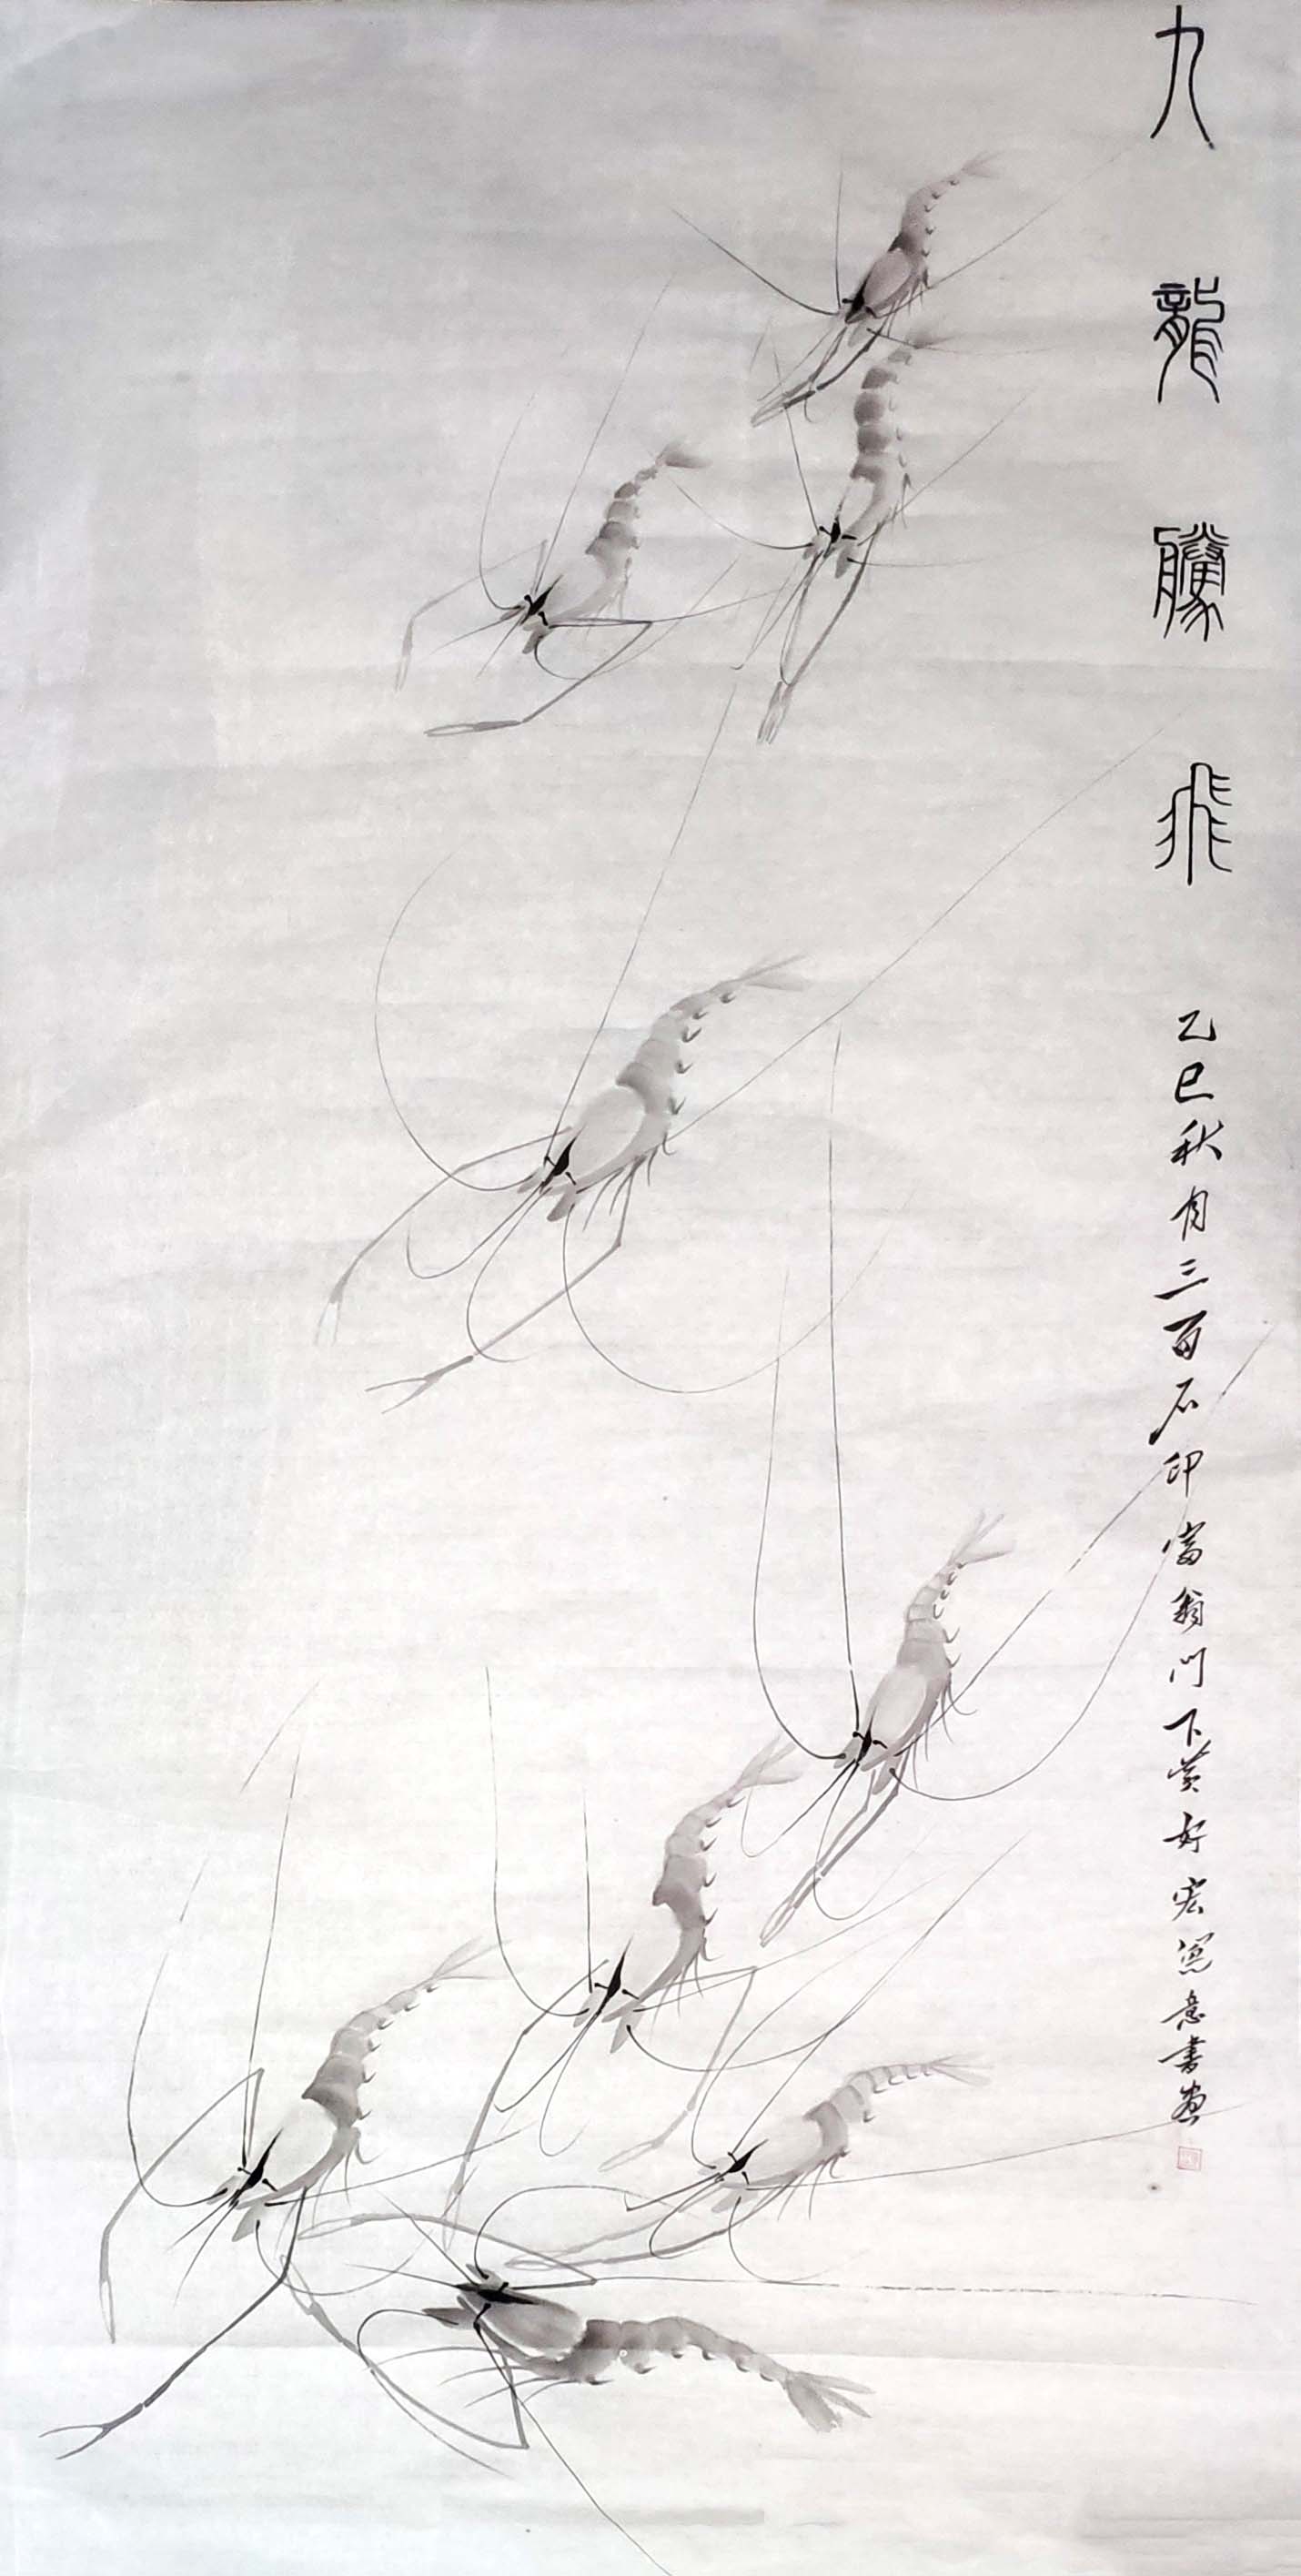 九龍騰飛
乙巳秋月三百石印富翁門下黄好宏寫意書画